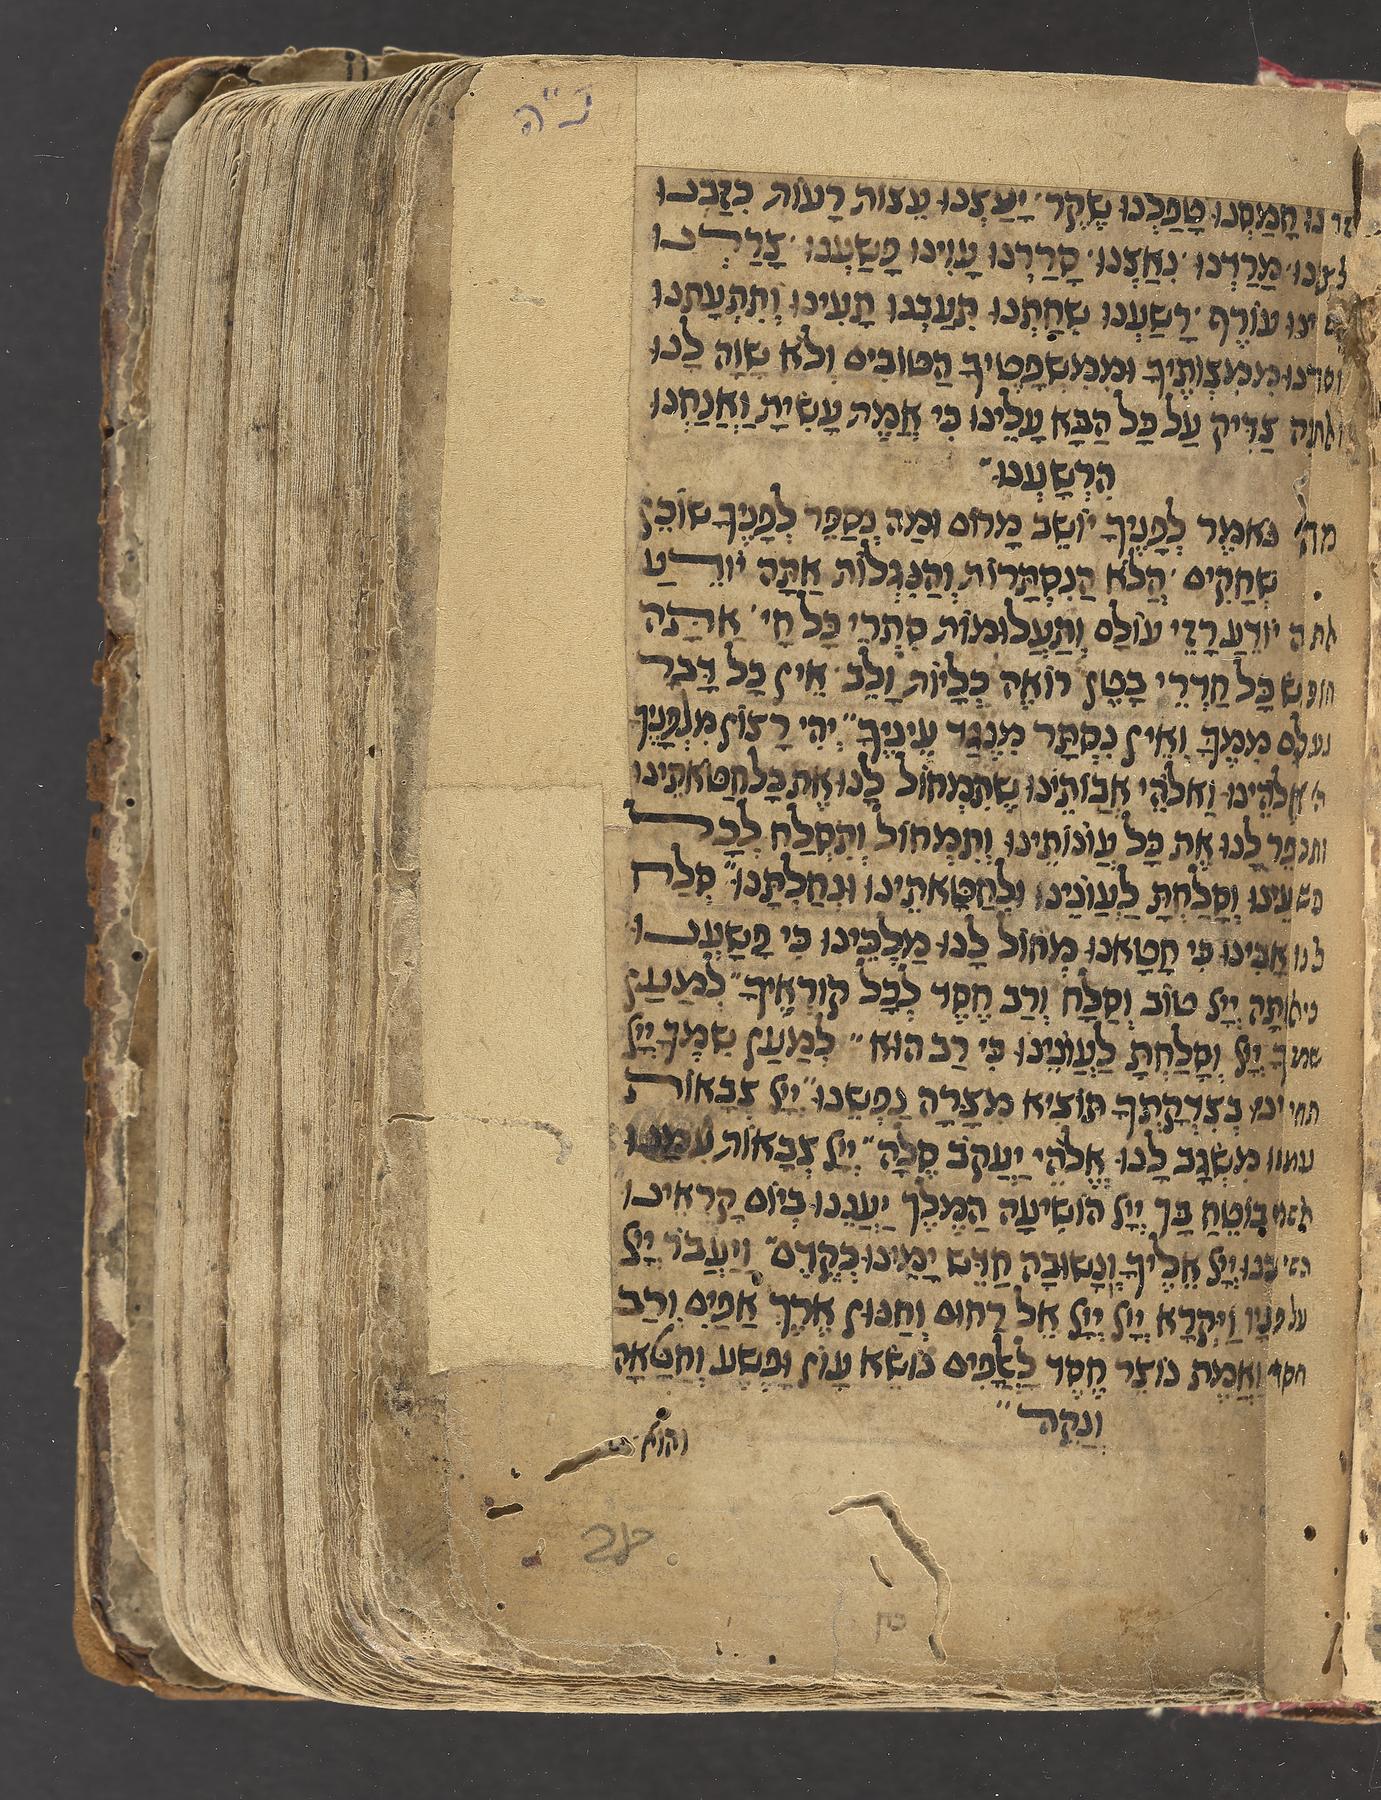 נ״ה
נו חָמַסְנוּ טָפַלְנוּ שֶׁקֶר׳ יָעַצְנוּ עֵצוֹת רָעוֹת כִּזַּבְנוּ
לצנו׳ מָרַדְנוּ׳ נִאַצְנוּ׳ סָרַרְנוּ עָוִינוּ פָּשַׁעְנוּ׳ צָרַרְנוּ
ינו עוֹרֶף׳ רָשַׁעְנוּ שִׁחַתְנוּ תִּעַבְנוּ תָּעִינוּ וְתִעְתָּעְנוּ
וסרנו מִמִּצְוֹתֶיךָ וּמִמִּשְׁפָּטֶיךָ הַטּוֹבִים וְלֹא שָׁוָה לָנוּ
ואתה צַדִּיק עַל כָּל הַבָּא עָלֵינוּ כִּי אֱמֶת עָשִׂיתָ וַאֲנַחְנוּ
הִרְשָׁעְנוּ״
מה נֹּאמַר לְפָנֶיךָ יוֹשֵׁב מָרוֹם וּמַה נְּסַפֵּר לְפָנֶיךָ שׁוֹכֵן
שְׁחָקִים׳ הֲלֹא הַנִּסְתָּרוֹת וְהַנִּגְלוֹת אַתָּה יוֹדֵעַ
אתה יוֹדֵעַ רָזֵי עוֹלָם וְתַעֲלוּמוֹת סִתְרֵי כָּל חָי׳ אַתָּה
חופש כָּל חַדְרֵי בָטֶן רוֹאֶה כְלָיוֹת וָלֵב׳ אֵין כָּל דָּבָר
נעלם מִמֶּךָּ וְאֵין נִסְתָּר מִנֶּגֶד עֵינֶיךָ״ יְהִי רָצוֹן מִלְּפָנֶיךָ
אֱלֹהֵינוּ וֵאלֹהֵי אֲבוֹתֵינוּ שֶׁתִּמְחוֹל לָנוּ אֶת כָּל חַטֹּאתֵינוּ
ותכפר לָנוּ אֶת כָּל עֲוֹנוֹתֵינוּ וְתִמְחוֹל וְתִסְלַח לְכָל
פשעינו וְסָלַחְתָּ לַעֲוֹנֵינוּ וּלְחַטָּאתֵינוּ וּנְחַלְתָּנוּ״ סְלַח
לנו אָבִינוּ כִּי חָטָאנוּ מְחוֹל לָנוּ מַלְכֵּינוּ כִּי פָשָׁעְנוּ
כי אתָּה יְיָ טוֹב וְסַלָּח וְרַב חֶסֶד לְכָל קוֹרְאֶיךָ״ לְמַעַן
שמךָ יְיָ וְסָלַחְתָּ לַעֲוֹנֵינוּ כִּי רַב הוּא״ לְמַעַן שִׁמְךָ יְיָ
תחיינו בְּצִדְקָתְךָ תּוֹצִיא מִצָּרָה נַפְשֵׁנוּ״ יְיָ צְבָאוֹת
עמנו מִשְׂגָּב לָנוּ אֱלֹהֵי יַעֲקֹב סֶלָה״ יְיָ צְבָאוֹת
אדם בּוֹטֵחַ בָּךְ יְיָ הוֹשִׁיעָה הַמֶּלֶךְ יַעֲנֵנוּ בְיוֹם קָרְאֵינוּ
השיבנו יְיָ אֵלֶיךָ וְנָשׁוּבָה חַדֵּשׁ יָמֵינוּ כְּקֶדֶם״ וַיַּעֲבֹר יְיָ
על פָּנָיו וַיִּקְרָא יְיָ יְיָ אֵל רַחוּם וְחַנּוּן אֶרֶךְ אַפַּיִם וְרַב
חסד וֶאֱמֶת נוֹצֵר חֶסֶד לָאֲלָפִים נוֹשֵׂא עָוֹן וָפֶשַׁע וְחַטָּאָה
וְנַקֵּה״
והוא